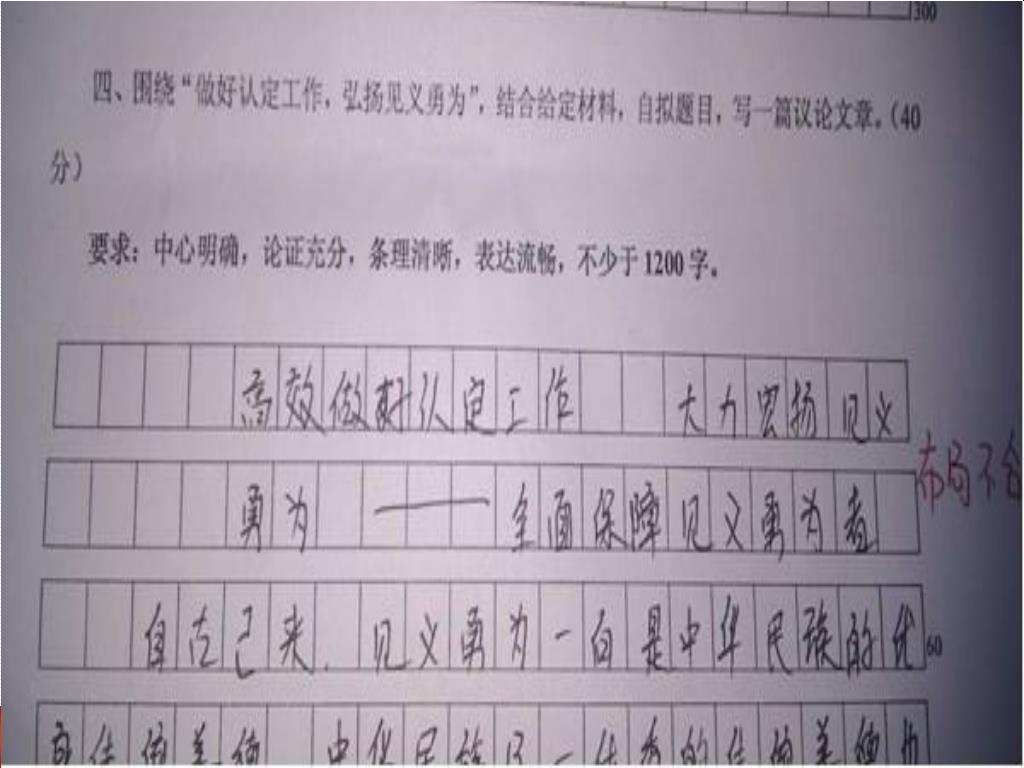 300
四、围绕“做好认定工作，弘扬见义勇为”，结合给定材料，自拟题目，写一篇议论文章。（40
分）
要求：中心明确，论证充分，条理清晰，表达流畅，不少于1200字。
高效做好认定工作 大力宏扬见义
布局不合
勇为 ——全面保障见义勇为者
自古已来，见义勇为一向是中华民族的优 60